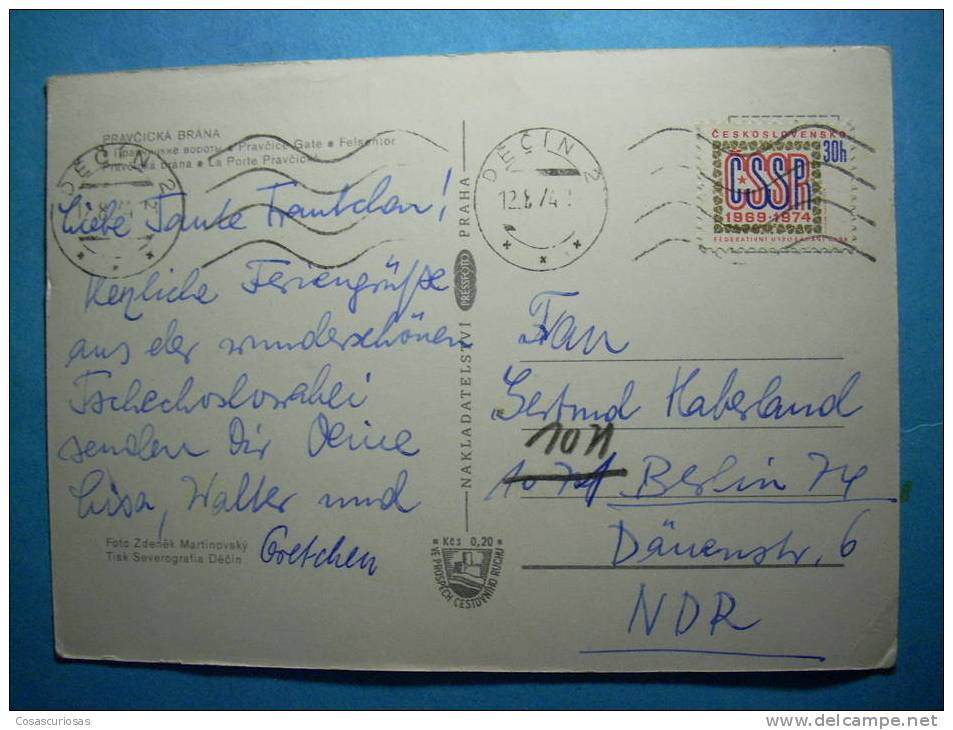 PRAVČICKÁ BRÁNA
вороты • Pravčice Gate • Felsentor
brána • La Porte Pravčická
DĚČÍN 2
DĚČÍN 2
12.8.74
ČESKOSLOVENSKO
30h
ČSSR
1969-1974
FEDERATIVNÍ USPOŘÁDÁNÍ ČSSR
Liebe Tante Trautchen!
Herzliche Feriengrüße
aus der wunderschönen
Tschechoslowakei
senden Dir Deine
Lisa, Walter und
Gretchen
Foto Zdeněk Martinovský
Tisk Severografia Děčín
NAKLADATELSTVÍ PRESSFOTO PRAHA
Kčs 0,20
VE PROSPĚCH CESTOVNÍHO RUCHU
Frau
Gertrud Haberland
1071
Berlin 74
Dänenstr. 6
NDR
Cosascuriosas
www.delcampe.net